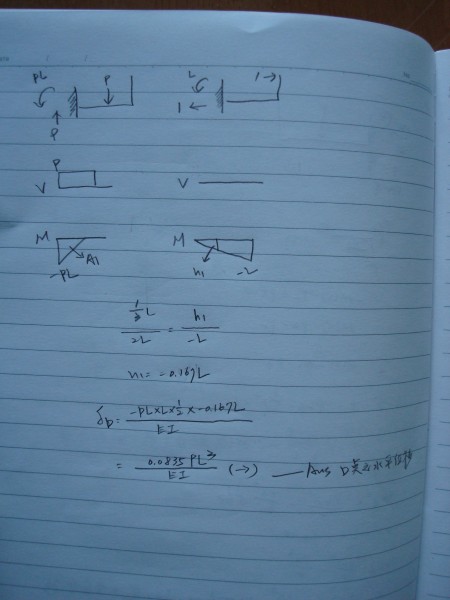 PL P
P
L 1→
1 ←
P
V
V
M
A1
-PL
M
h1 -L
1/3 L / 2L = h1 / -L
h1 = -0.167L
δD = -PL×L×1/2×-0.167L / EI
= 0.0835PL³ / EI (→) — Ans D點之水平位移